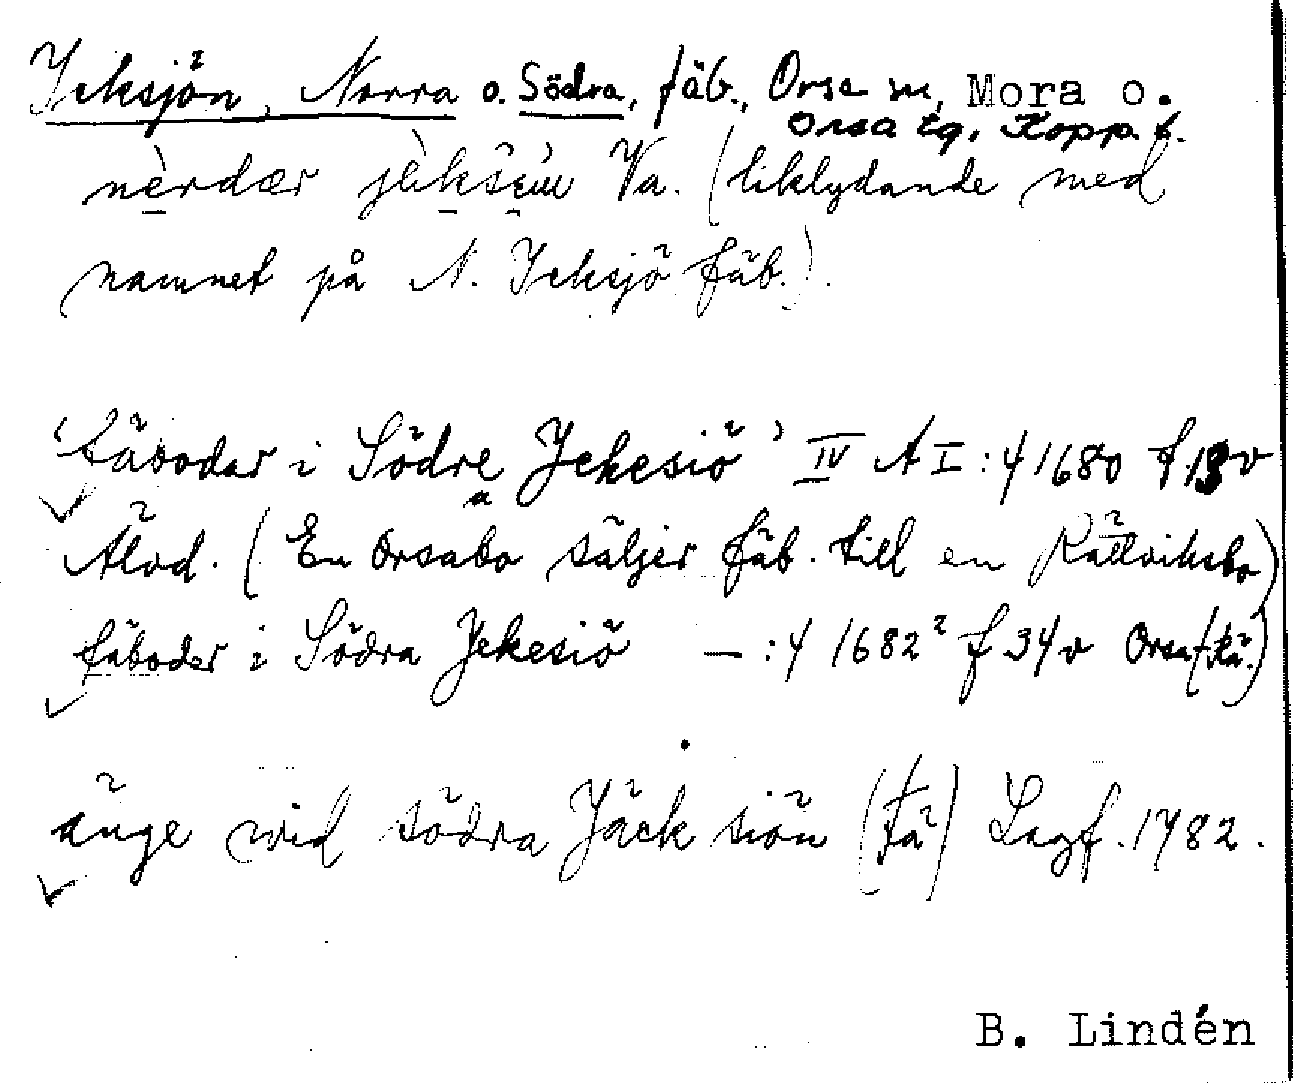 Jeksjön, Norra o. Södra, fäb., Orsa sn, Mora o.
Orsa tg, Kopp. l.
nèrdær Va. (liklydande med
namnet på N. Jeksjö fäb.).
'fäboder i Södre Jekesiö' IV A I:4 1680 f 13v
Älvd. (En Orsabo säljer fäb. till en Rättviksbo)
fäboder i Södra Jekesiö — :4 1682² f 34v Orsa (Rä.)
änge wid södra Jäck siön (fä) Lagf. 1782.
B. Lindén